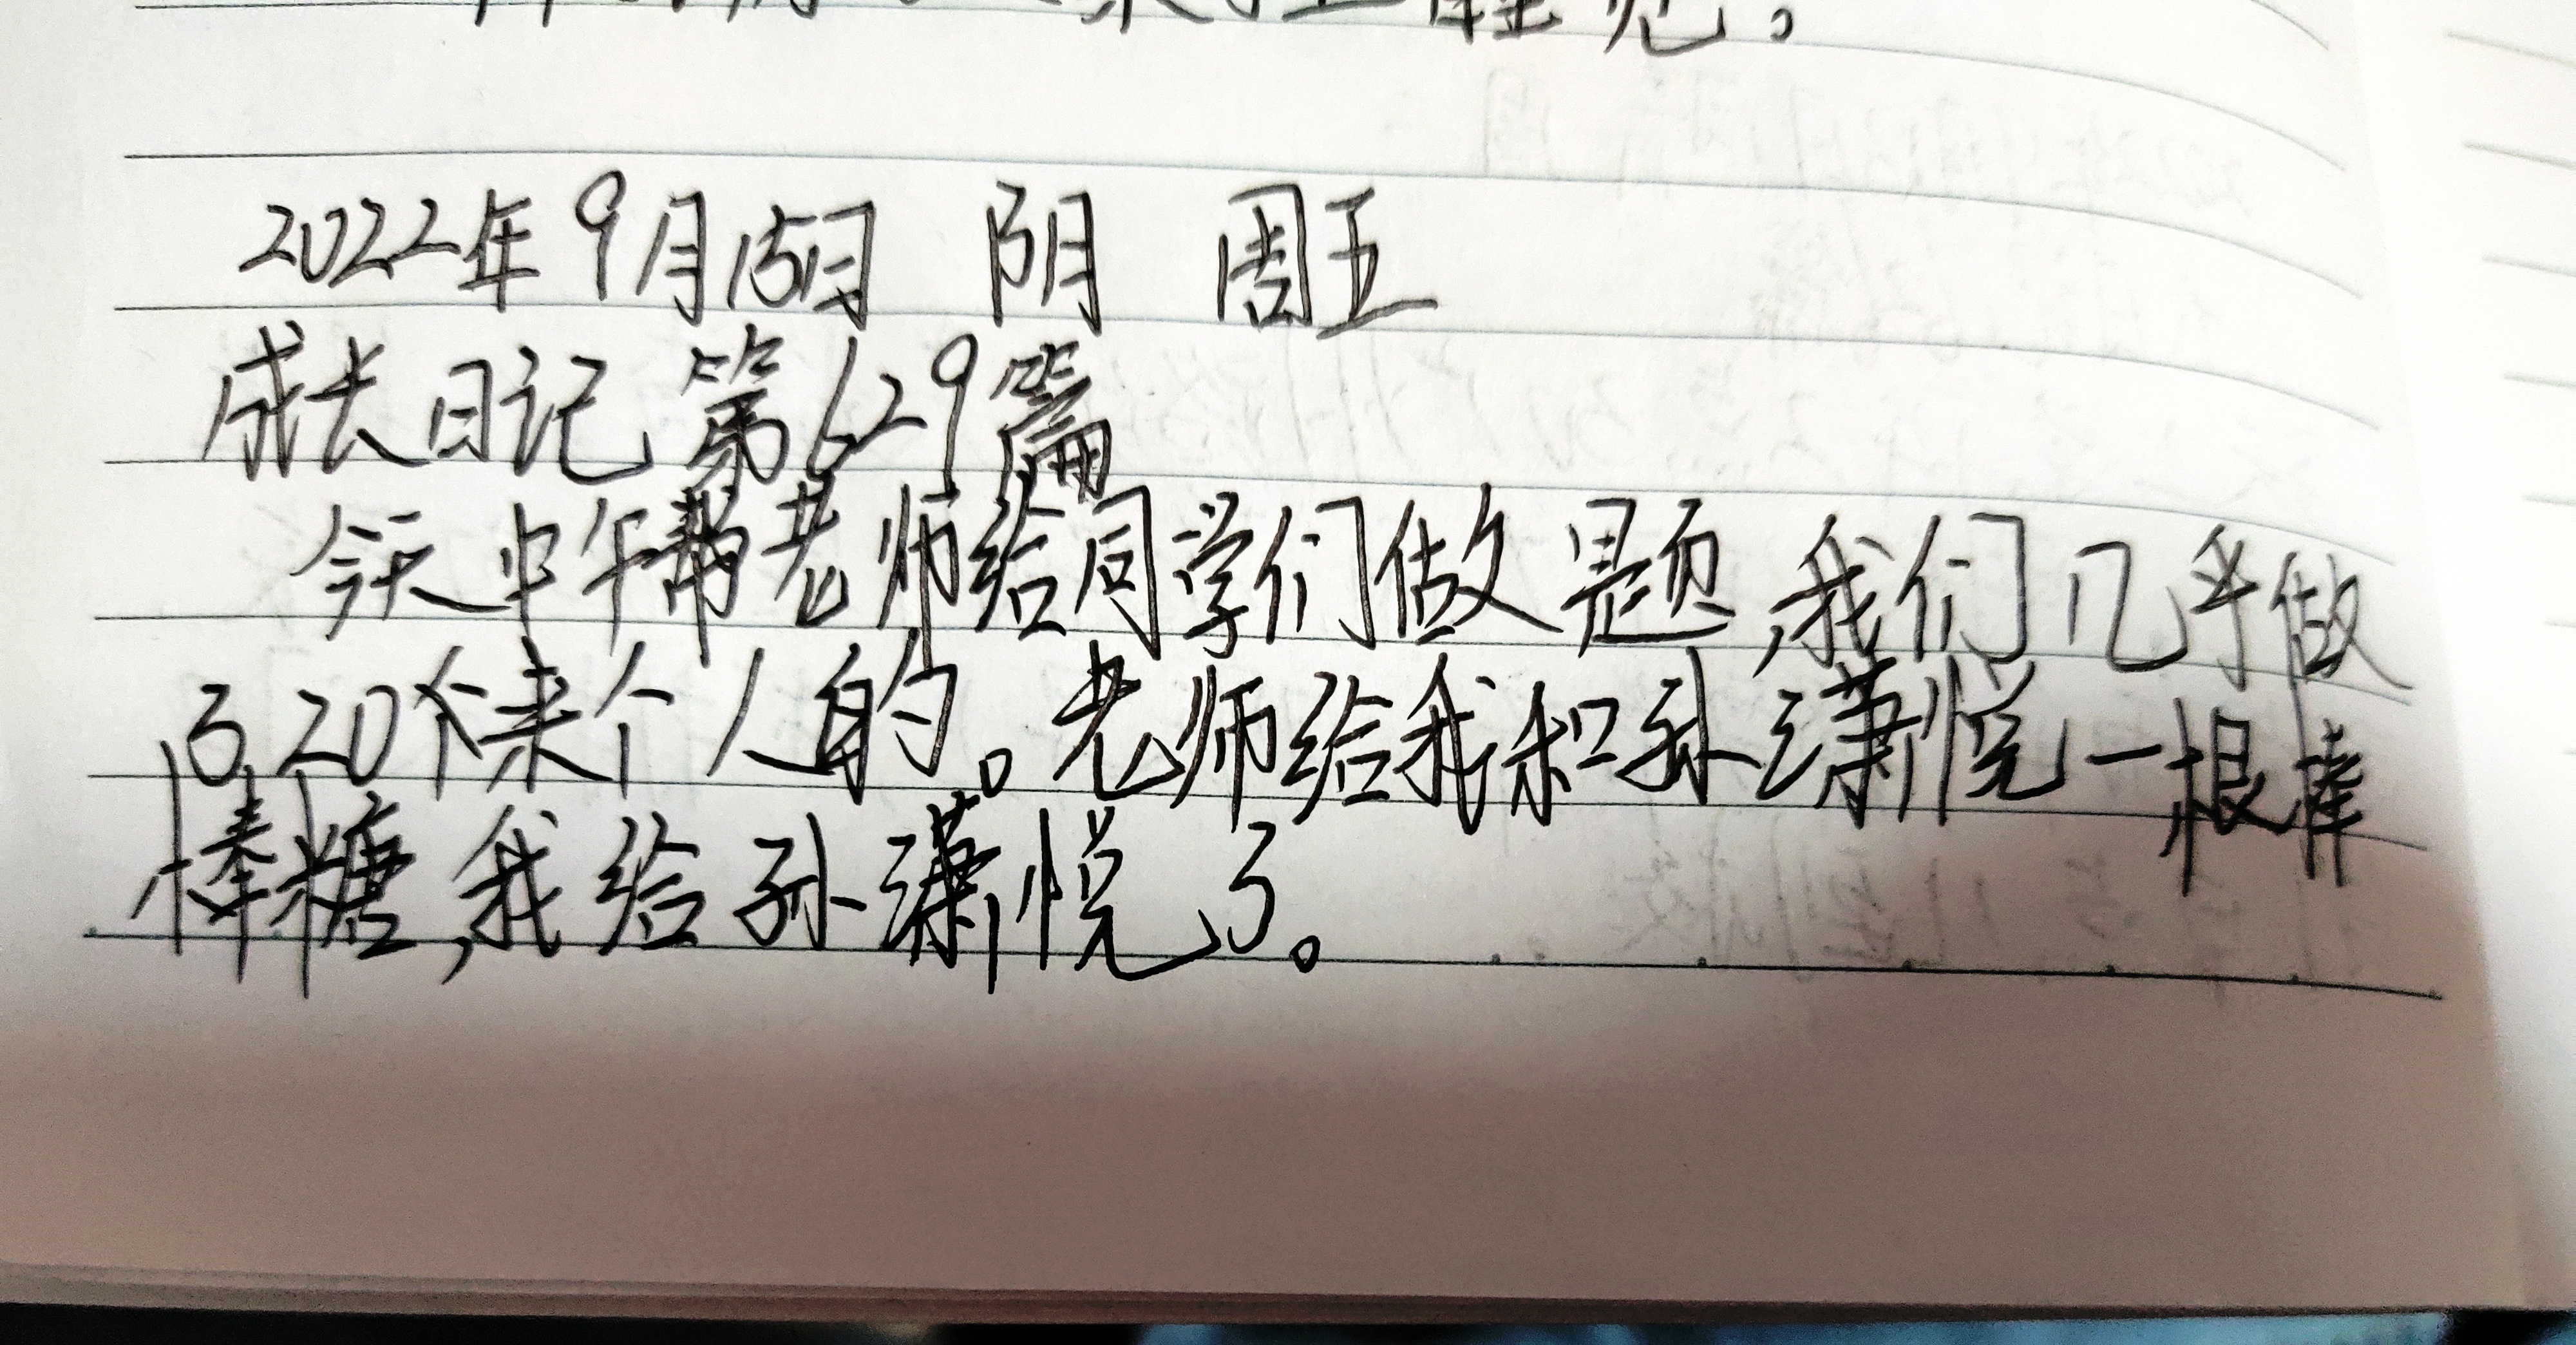 睡觉。
2022年9月15日 阴 周五
成长日记 第629篇
今天中午帮老师给同学们做题,我们几乎做
了20个来个人的。老师给我和孙潇悦一根棒
棒糖,我给孙潇悦了。